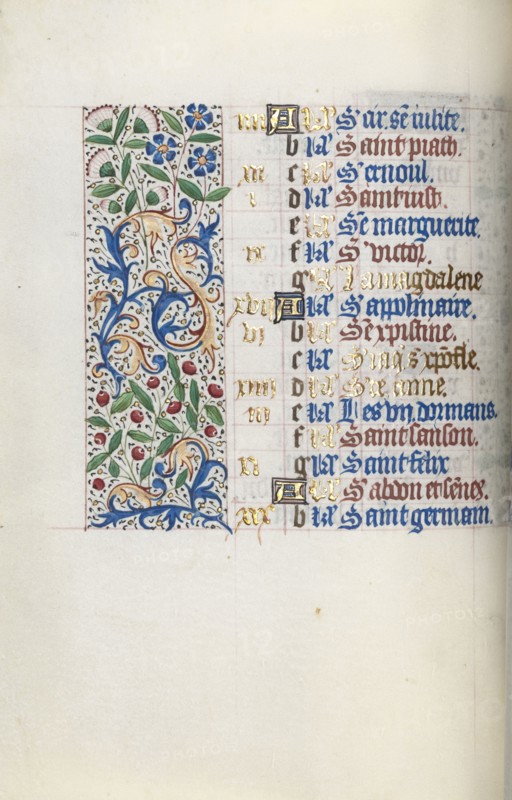 iiii A kl' S' cir sē iulite.
b kl' Saint piath.
xii c kl' S' ernoul.
i d kl' Saint iust.
e kl' Sē marguerite.
ix f kl' S' victor.
g kl' La magdalene
xvii A kl' S' apolinaire.
vi b kl' Sē xpistine.
c kl' S' iaq's xpōfle.
xiiii d kl' S'te anne.
iii e kl' Les vii dormans.
f kl' Saint sanson.
xi g kl' Saint felix
A kl' S' abdon et senes.
xix b kl' Saint germain.